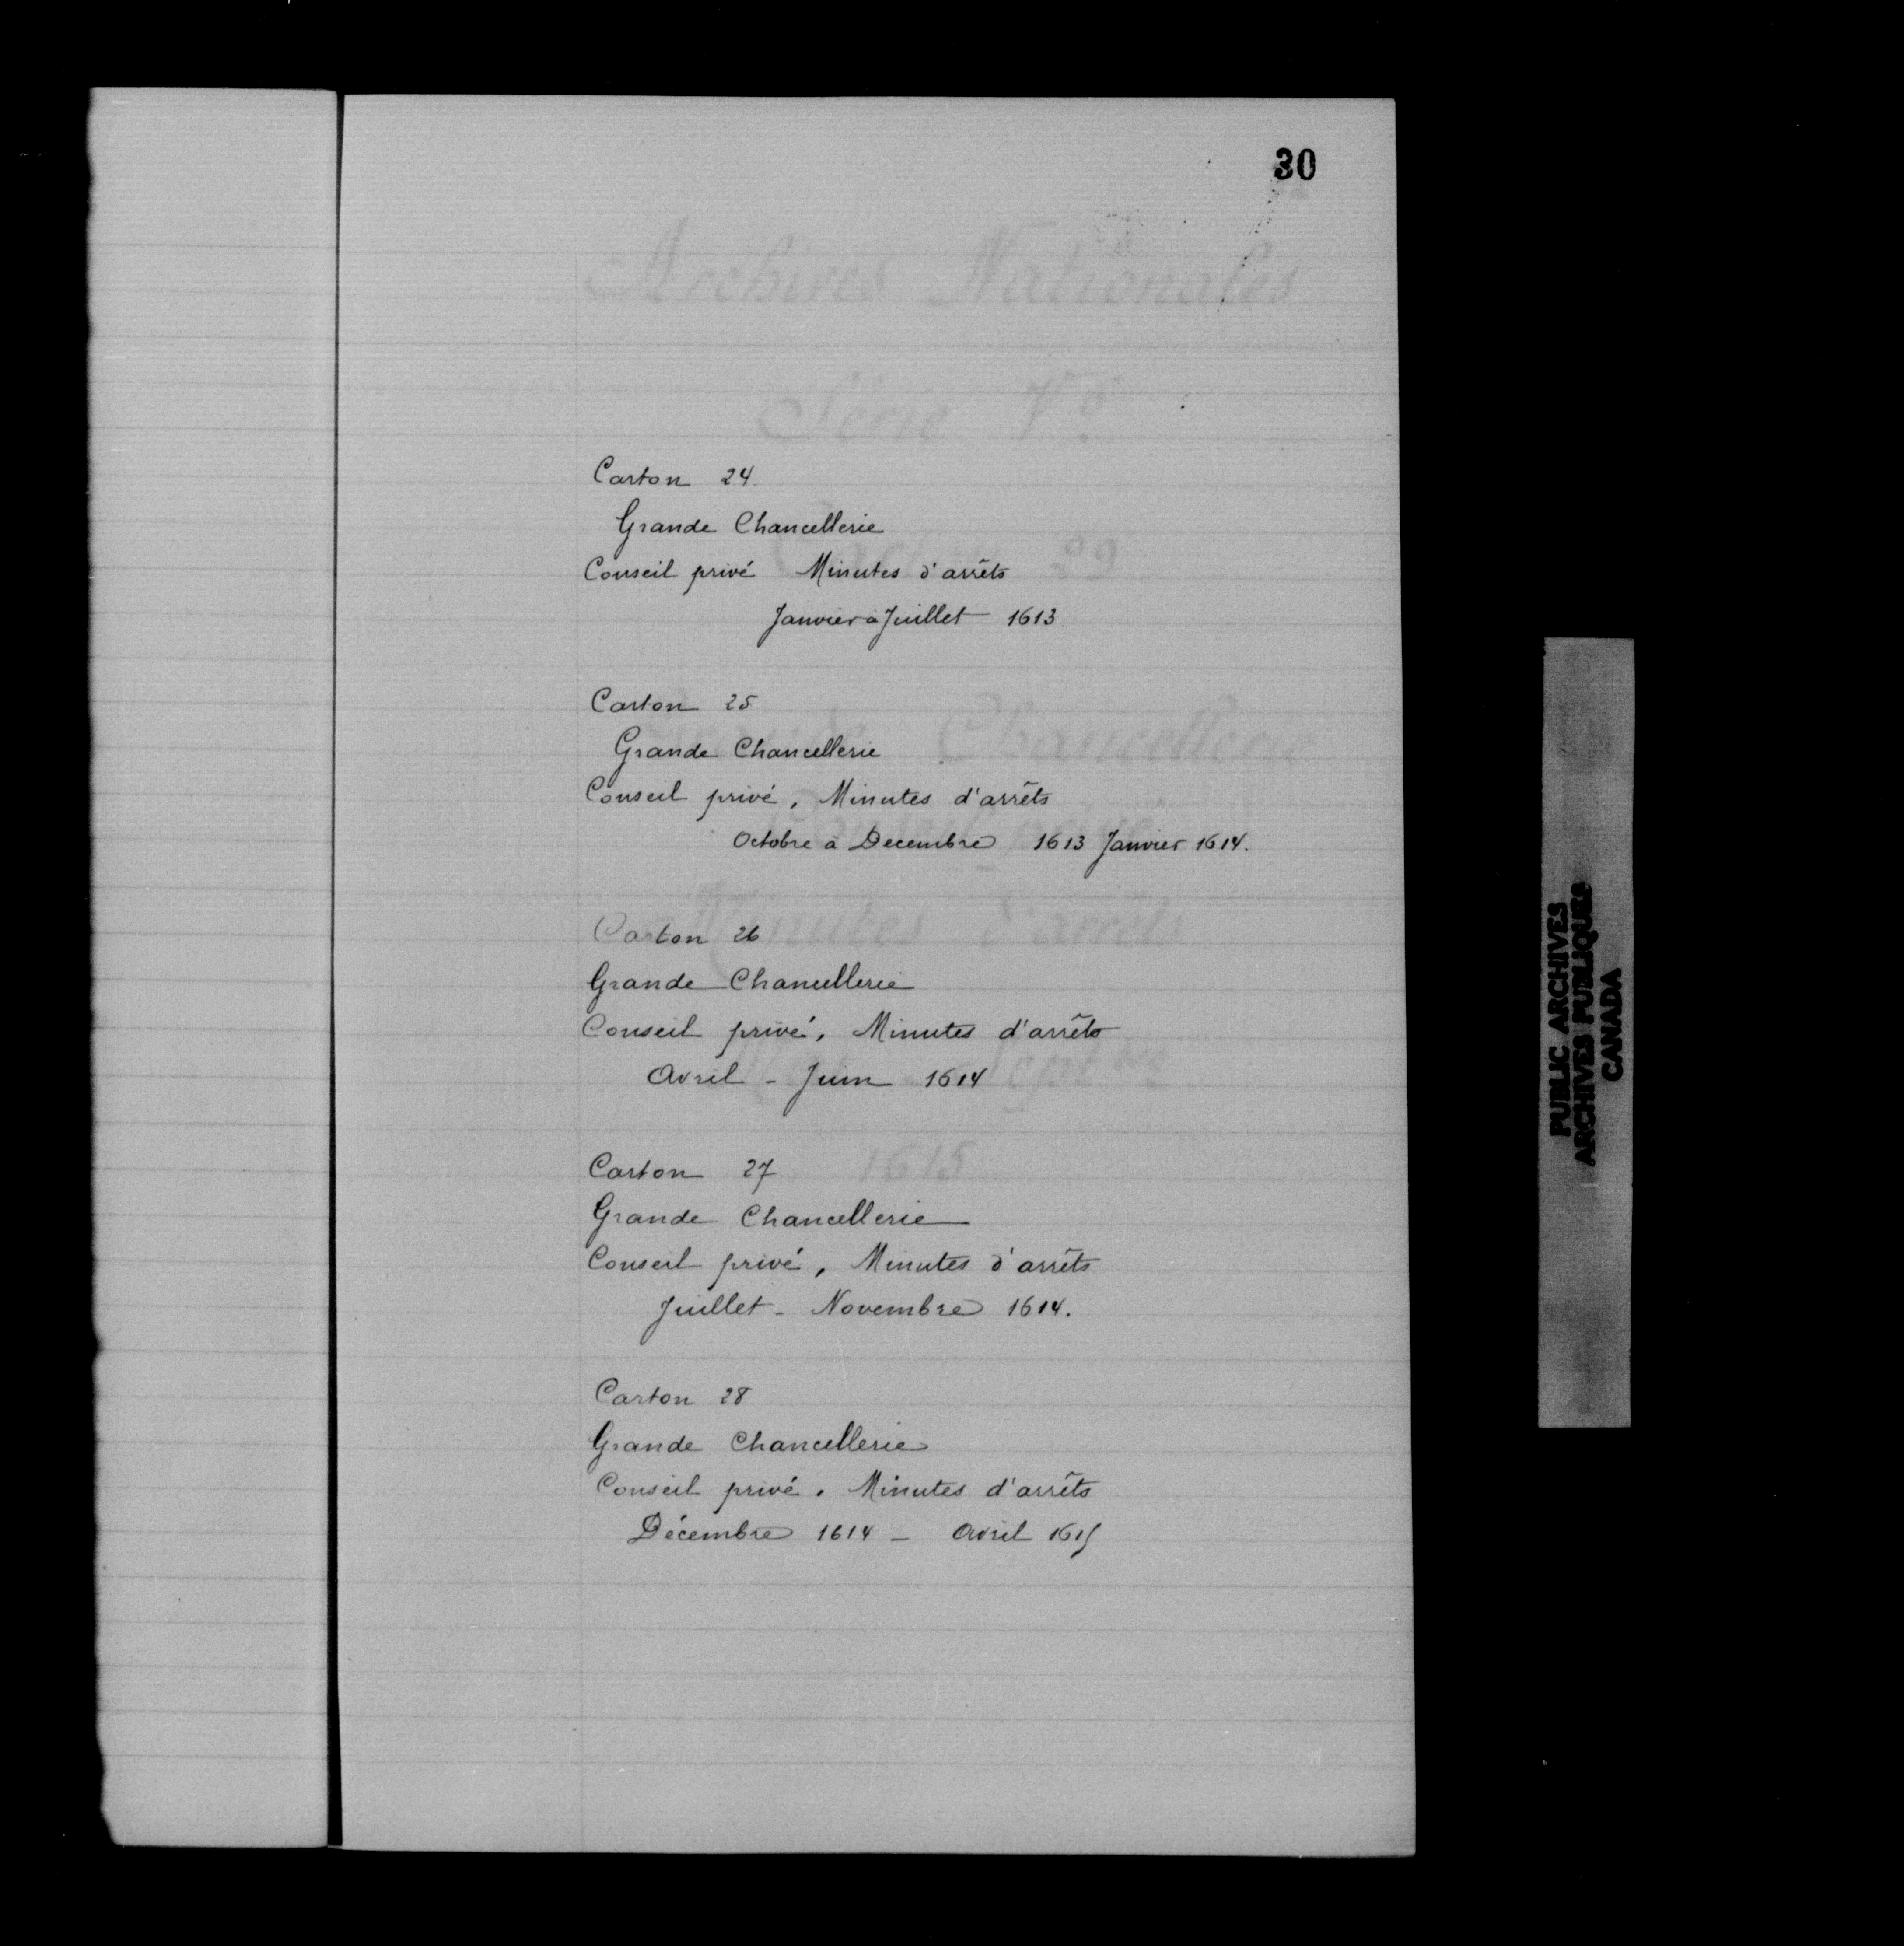 30
Archives Nationales
Série V6
Carton 24
Grande Chancellerie
29
Conseil privé Minutes d'arrêts
Janvier à Juillet 1613
Carton 25
Chancellerie
Grande Chancellerie
Conseil privé, Minutes d'arrêts
Octobre à Decembre 1613 Janvier 1614.
Minutes d'arrêts
Carton 26
Grande Chancellerie
Conseil privé, Minutes d'arrêts
Avril - Juin 1614
1615
Carton 27
Grande Chancellerie
Conseil privé, Minutes d'arrêts
Juillet - Novembre 1614.
Carton 28
Grande Chancellerie
Conseil privé. Minutes d'arrêts
Décembre 1614 - Avril 1615
PUBLIC ARCHIVES
ARCHIVES PUBLIQUES
CANADA